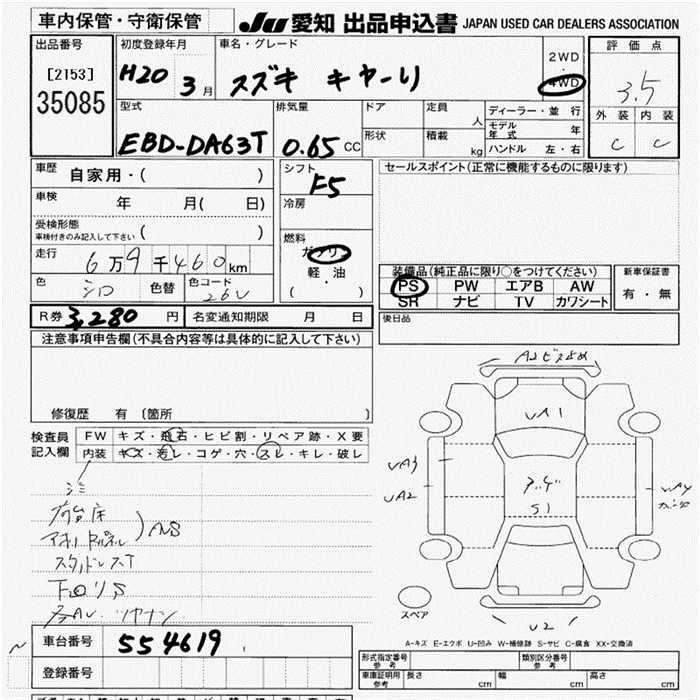 車内保管・守衛保管 JU 愛知 出品申込書 JAPAN USED CAR DEALERS ASSOCIATION
出品番号 [2153] 35085
初度登録年月 H20 3月
車名・グレード スズキ キャーリ
2WD・4WD
評価点 3.5
外装 内装
C C
型式 EBD-DA63T
排気量 0.65 CC
ドア 定員 人
形状 積載 kg
ディーラー・並行
モデル年式 年
ハンドル 左・右
車歴 自家用・( )
車検 年 月( 日)
受検形態 車検付きのみ記入して下さい ( )
走行 6万9千460km
色 シロ 色替 色コード 26U
シフト F5
冷房
燃料 ガソリン・軽油 ( )
セールスポイント(正常に機能するものに限ります)
装備品(純正品に限り○をつけてください)
PS PW エアB AW
SR ナビ TV カワシート
新車保証書 有・無
R券 3,280 円 名変通知期限 月 日
後日品
注意事項申告欄(不具合内容等は具体的に記入して下さい)
修復歴 有 〔箇所 〕
検査員記入欄
FW キズ・飛石・ヒビ割・リペア跡・X要
内装 キズ・汚レ・コゲ・穴・スレ・キレ・破レ
荷台床
AS
下回りS
A2 ビス止め
UA1
UA3
UA2
S1
U2
スペア
A-キズ E-エクボ U-凹み W-補修跡 S-サビ C-腐食 XX-交換済
車台番号 554619
登録番号
形式指定番号 参考 類別区分番号 参考
車庫証明用 参考 長さ cm 幅 cm 高さ cm